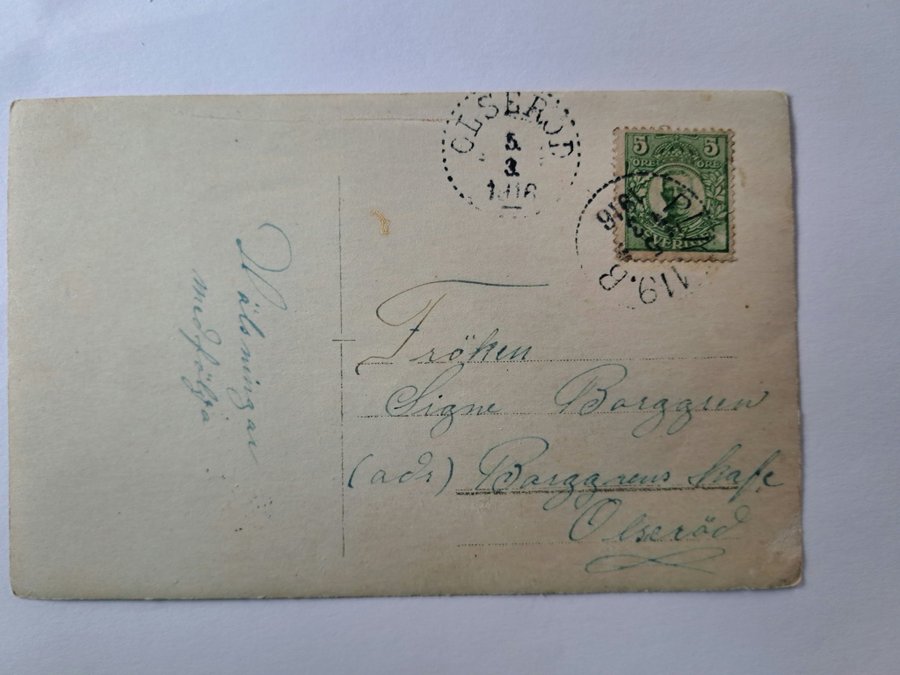 OLSERÖD
5.
3.
1916
5 5
ÖRE ÖRE
SVERIGE
1916
119.B
Hälsningar
medfölja
Fröken
Signe Borggren
(adr) Borggrens Kafe
Olseröd